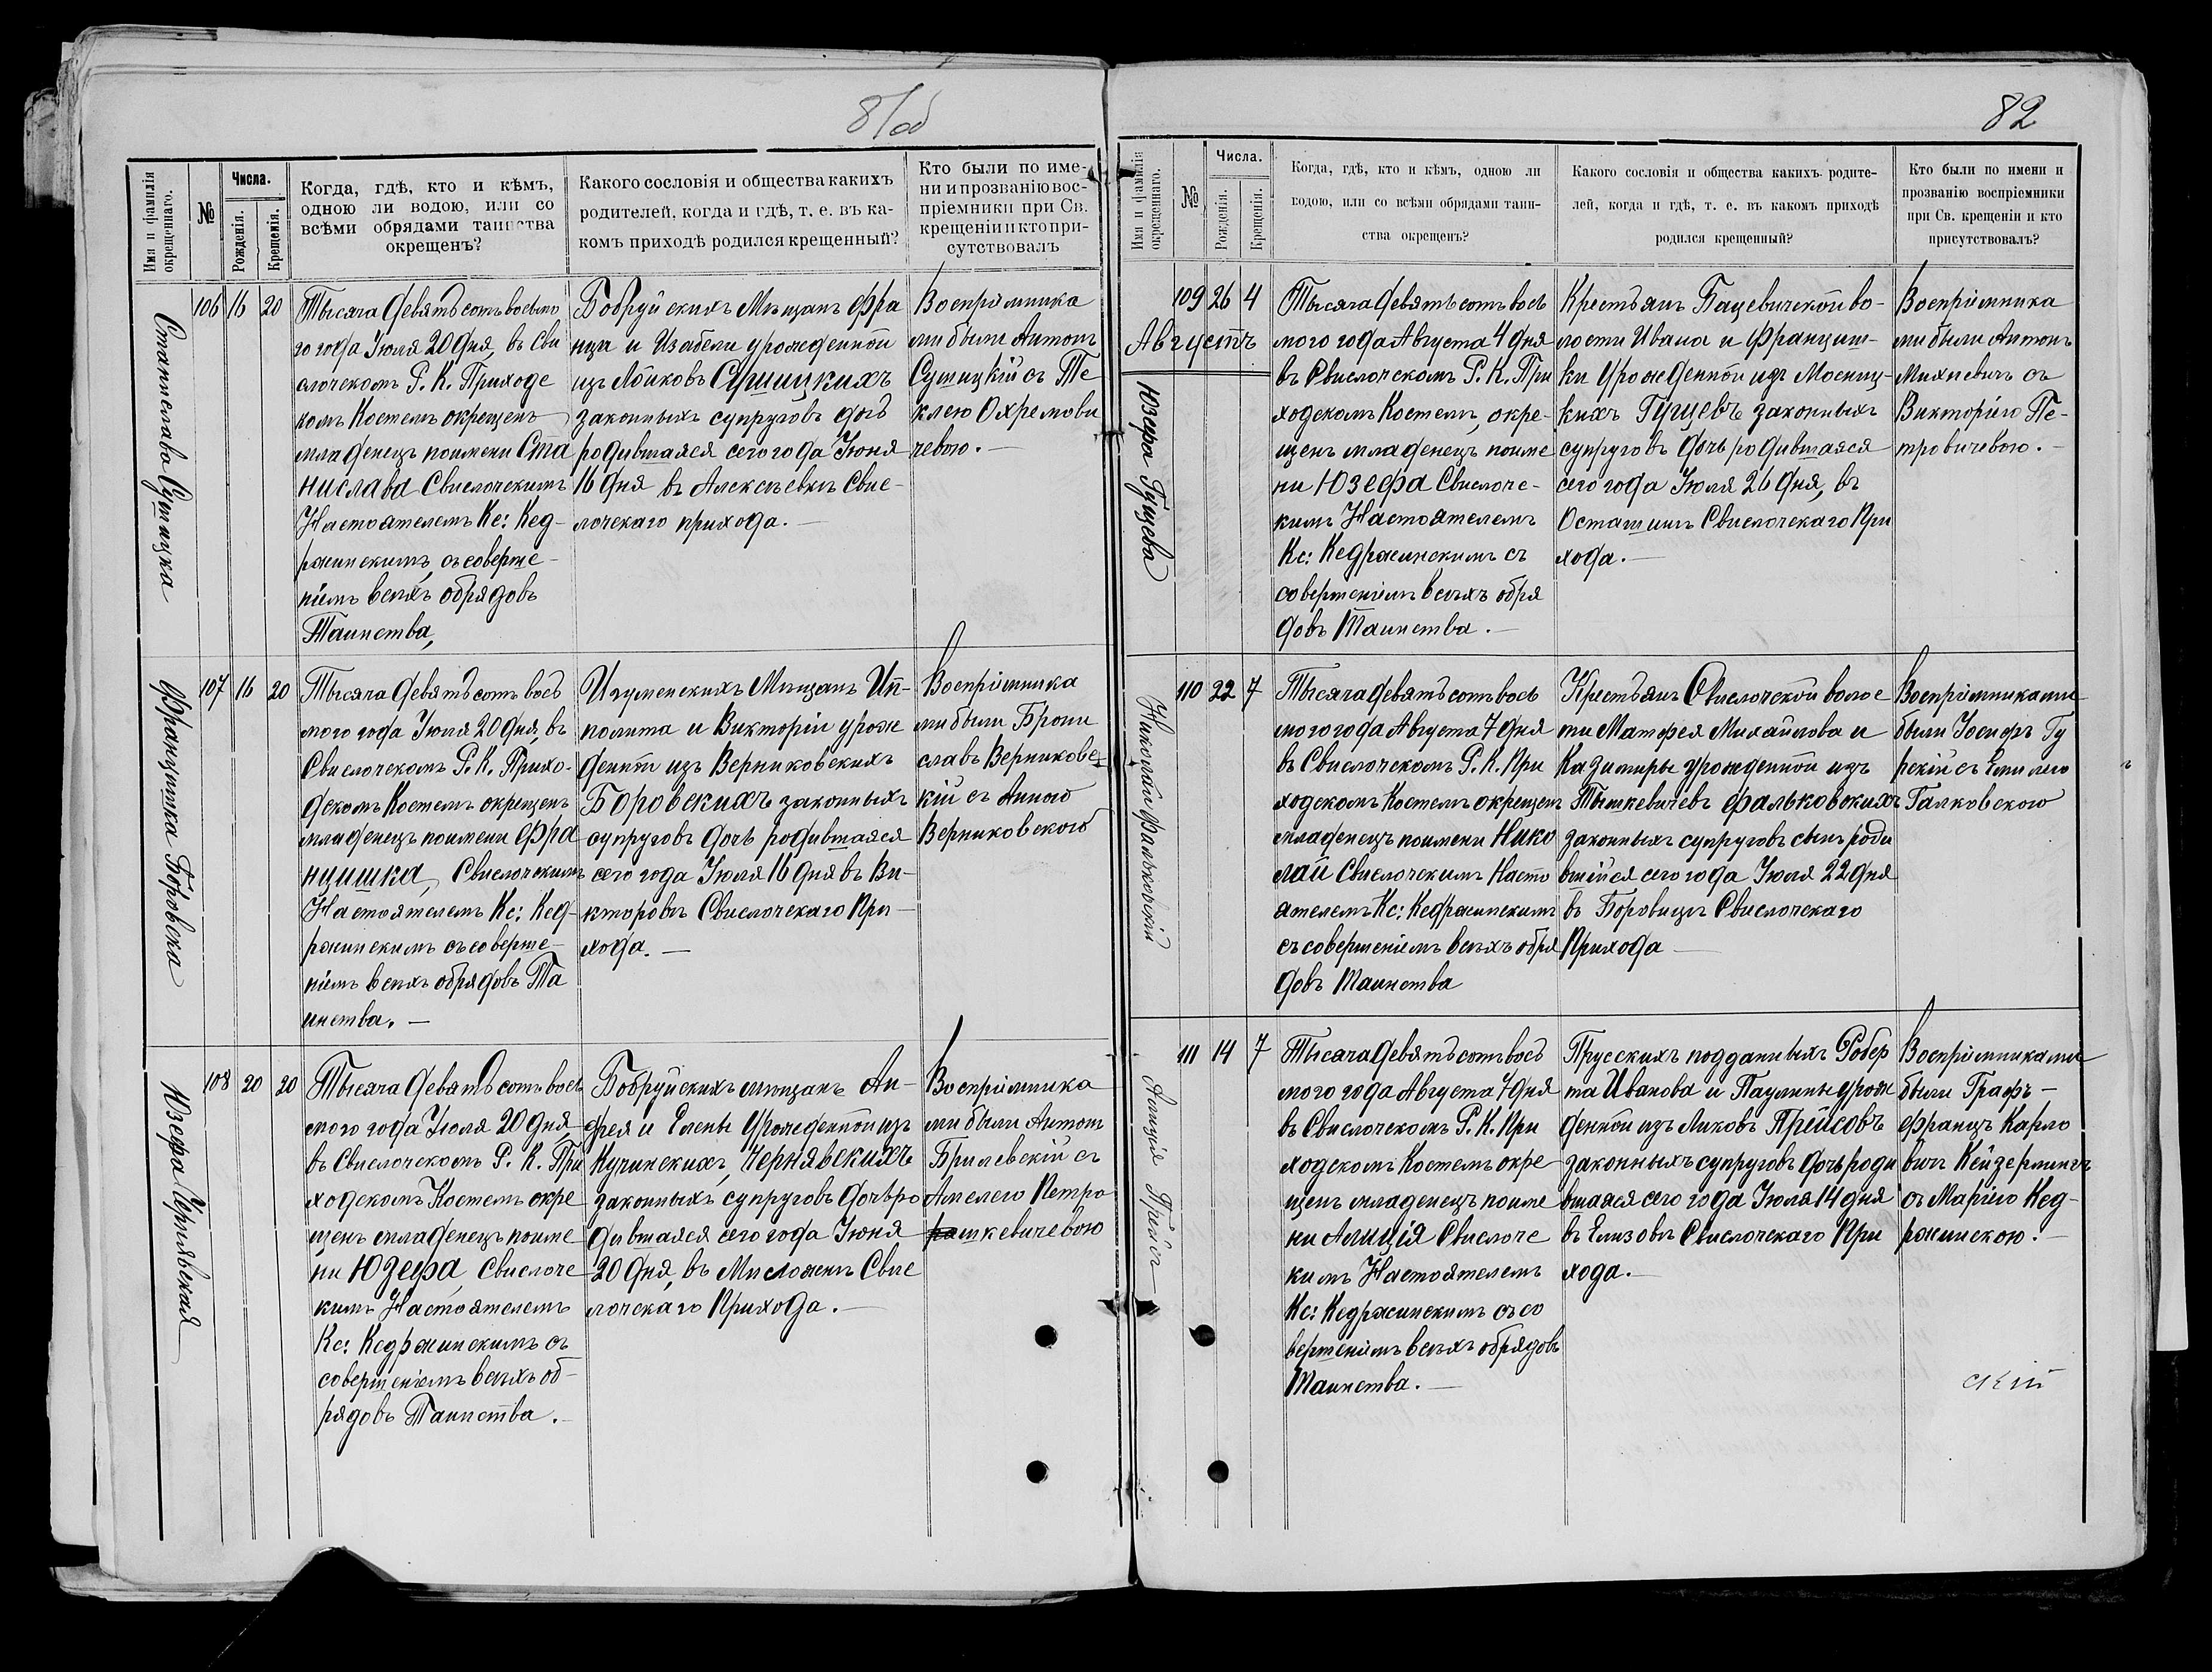 81об
Имя и фамилія окрещеннаго.
№
Числа.
Рожденія.
Крещенія.
Когда, гдѣ, кто и кѣмъ,
одною ли водою, или со
всѣми обрядами таинства
окрещенъ?
Какого сословія и общества какихъ
родителей, когда и гдѣ, т. е. въ ка-
комъ приходѣ родился крещенный?
Кто были по име-
ни и прозванію вос-
пріемники при Св.
крещеніи и кто при-
сутствовалъ
Станислава Сушицка
106 16 20
Тысяча девятьсотъ восьмо
го года Іюля 20 дня, въ Сви
слочскомъ Р. К. Приходс
комъ Костелѣ окрещенъ
младенецъ поимени Ста
нислава Свислочскимъ
Настоятелемъ Кс: Кед-
ржинскимъ, съ соверше-
ніемъ всѣхъ обрядовъ
Таинства,
Бобруйскихъ Мѣщанъ Фра
нца и Изабели урожденной
изъ Лойковъ Сушицкихъ
законныхъ супруговъ дочь
родившаяся сего года Іюня
16 дня въ Алексѣевкѣ Свис-
лочскаго прихода. —
Воспріемника
ми были Антонъ
Сушицкій съ Те
клею Охремови
чевою. —
Францишка Боровска
107 16 20
Тысяча девятьсотъ вось
мого года Іюля 20 дня, въ
Свислочскомъ Р. К. Прихо-
дскомъ Костелѣ окрещенъ
младенецъ поимени Фра
нцишка, Свислочскимъ
Настоятелемъ Кс: Кед-
ржинскимъ съ соверше-
ніемъ всѣхъ обрядовъ Та
инства. —
Игуменскихъ Мѣщанъ Ип-
полита и Викторіи урож
денной изъ Верниковскихъ
Боровскихъ законныхъ
супруговъ дочь родившаяся
сего года Іюля 16 дня въ Ви-
кторовѣ Свислочскаго При-
хода. —
Воспріемника
ми были Брони
славъ Верниковс
кій съ Анною
Верниковскою
Юзефа Чернявская
108 20 20
Тысяча девятьсотъ вось
мого года Іюля 20 дня
въ Свислочскомъ Р. К. При
ходскомъ Костелѣ окре
щенъ младенецъ поиме
ни Юзефа, Свислочс
кимъ Настоятелемъ
Кс: Кедржинскимъ съ
совершеніемъ всѣхъ об-
рядовъ Таинства. —
Бобруйскихъ мѣщанъ Ан-
дрея и Елены Урожденной изъ
Кучинскихъ, Чернявскихъ
законныхъ супруговъ дочь ро
дившаяся сего года Іюня
20 дня, въ Мисложнѣ Свис
лочскаго Прихода. —
Воспріемника
ми были Антонъ
Брилевскій съ
Амелею Петра
шкевичевою
82
Имя и фамилія окрещеннаго.
№
Числа.
Рожденія.
Крещенія.
Когда, гдѣ, кто и кѣмъ, одною ли
водою, или со всѣми обрядами таин-
ства окрещенъ?
Какого сословія и общества какихъ родите-
лей, когда и гдѣ, т. е. въ какомъ приходѣ
родился крещенный?
Кто были по имени и
прозванію воспріемники
при Св. крещеніи и кто
присутствовалъ?
Августъ
Юзефа Гущева
109 26 4
Тысяча девятьсотъ вось
мого года Августа 4 дня
въ Свислочскомъ Р. К. При
ходскомъ Костелѣ, окре-
щенъ младенецъ поиме
ни Юзефа Свислочс-
кимъ Настоятелемъ
Кс: Кедржинскимъ съ
совершеніемъ всѣхъ обря
довъ Таинства. —
Крестьянъ Бацевичской во-
лости Ивана и Францишъ-
ки Урожденной изъ Мосниц-
кихъ Гущевъ законныхъ
супруговъ дочь родившаяся
сего года Іюля 26 дня, въ
Осташинѣ Свислочскаго При
хода. —
Воспріемника
ми были Антонъ
Михневичъ съ
Викторіею Пе-
тровичевою. —
Николай Фальковскій
110 22 7
Тысяча девятьсотъ вось
мого года Августа 7 дня
въ Свислочскомъ Р. К. При
ходскомъ Костелѣ окрещенъ
младенецъ поимени Нико
лай Свислочскимъ Насто
ятелемъ Кс: Кедржинскимъ
съ совершеніемъ всѣхъ обря
довъ Таинства
Крестьянъ Свислочской волос
ти Матфея Михайлова и
Казимиры урожденной изъ
Тышкевичевъ Фальковскихъ
законныхъ супруговъ сынъ роди
вшійся сего года Іюля 22 дня
въ Боровицѣ Свислочскаго
Прихода —
Воспріемниками
были Іосифъ Гу
рскій съ Емилею
Галковскою
Алиція Прейсъ
111 14 7
Тысяча девятьсотъ вось
мого года Августа 7 дня
въ Свислочскомъ Р. К. При
ходскомъ Костелѣ окре
щенъ младенецъ поиме
ни Алиція Свислочс
кимъ Настоятелемъ
Кс: Кедржинскимъ съ со
вершеніемъ всѣхъ обрядовъ
Таинства. —
Прусскихъ подданныхъ Робер
та Иванова и Паулины урож
денной изъ Ликовъ Прейсовъ
законныхъ супруговъ дочь роди
вшаяся сего года Іюля 14 дня
въ Елизовѣ Свислочскаго При
хода. —
Воспріемниками
были Графъ —
Францъ Карло
вичъ Кейзерлингъ
съ Маріею Кед-
ржинскою. —
скій